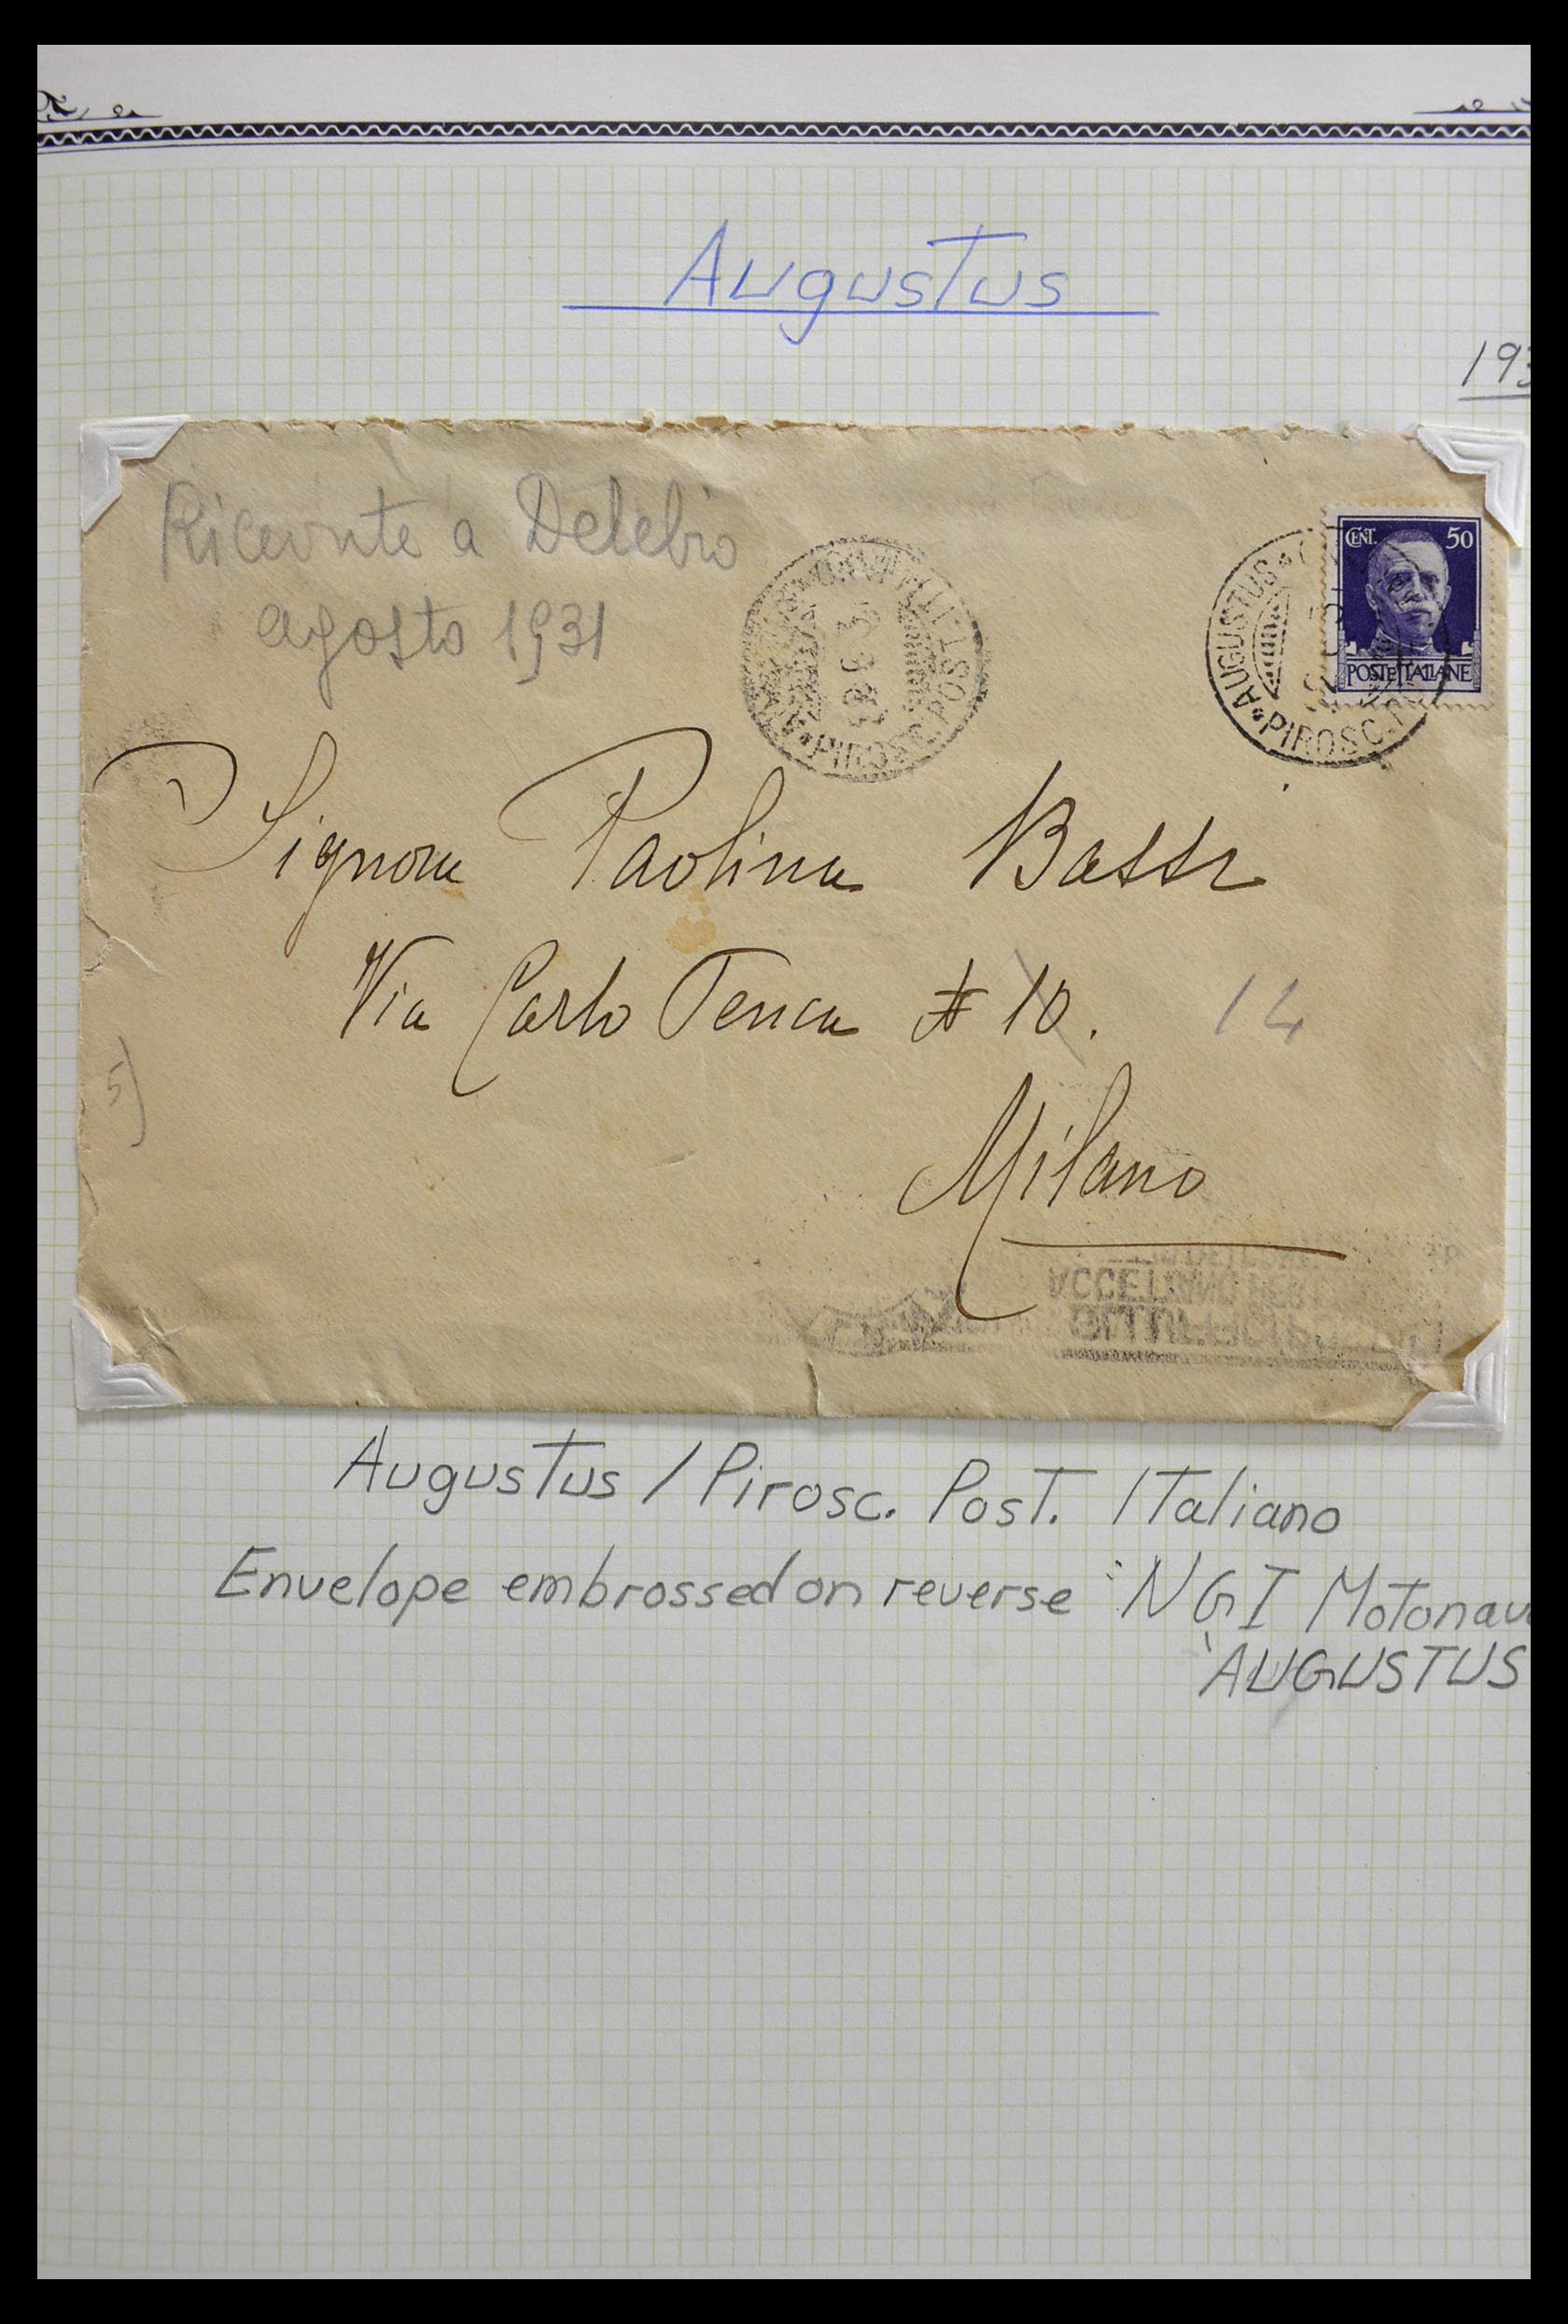 Augustus
193
Ricevute a Delebio
agosto 1931
CENT. 50
POSTE ITALIANE
AUGUSTUS
PIROSC. POST. ITAL
PIROSC.
Signora Paolina Bassi
Via Carlo Tenca # 10. 14
5)
Milano
Augustus / Pirosc. Post. Italiano
Envelope embrossed on reverse "NGI Motonav
'AUGUSTUS